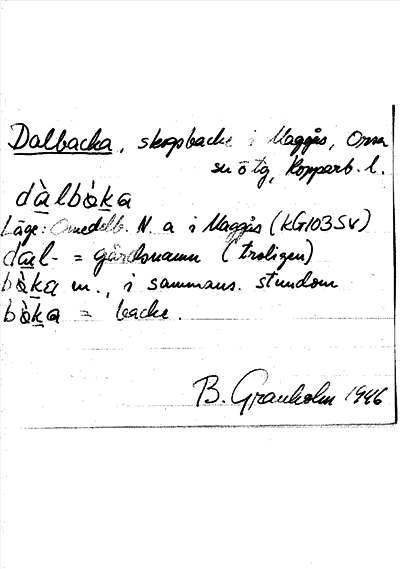 Dalbacka, skogsbacke i Maggås, Orsa
sn ö tg, Kopparb. l.
dàlbàka
Läge: Omedelb. N. a i Maggås (KG103SV)
dal- = gårdsnamn (troligen)
bàka m., i sammans. stundom
bàka = backe.
B. Granholm 1946